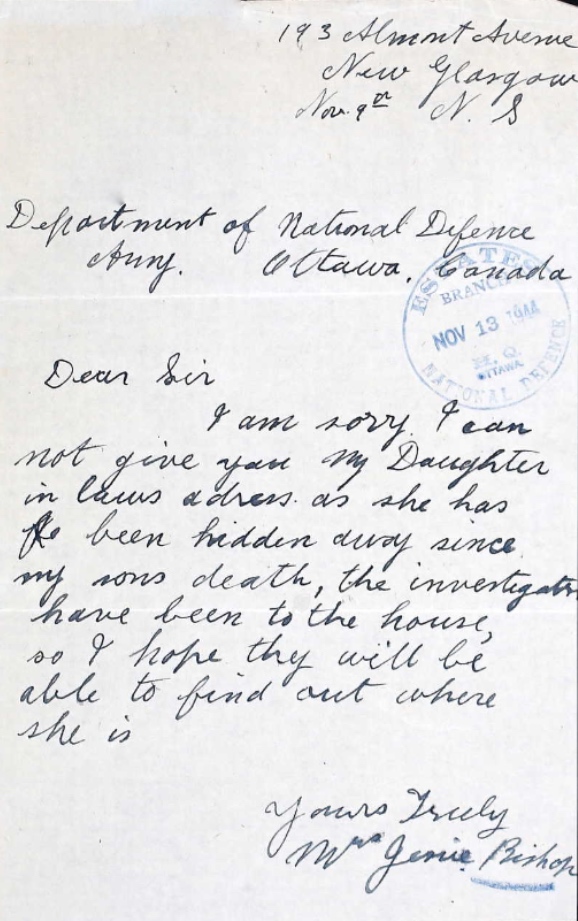 193 Almont Avenue
New Glasgow
Nov. 9th N. S
Department of National Defence
Army. Ottawa, Canada
ESTATES
BRANCH
NOV 13 1944
H. Q.
OTTAWA
NATIONAL DEFENCE
Dear Sir
I am sorry I can
not give you my Daughter
in laws adress as she has
been hidden away since
my sons death, the investigators
have been to the house,
so I hope they will be
able to find out where
she is
Yours Truly
Mrs Jenie Bishop